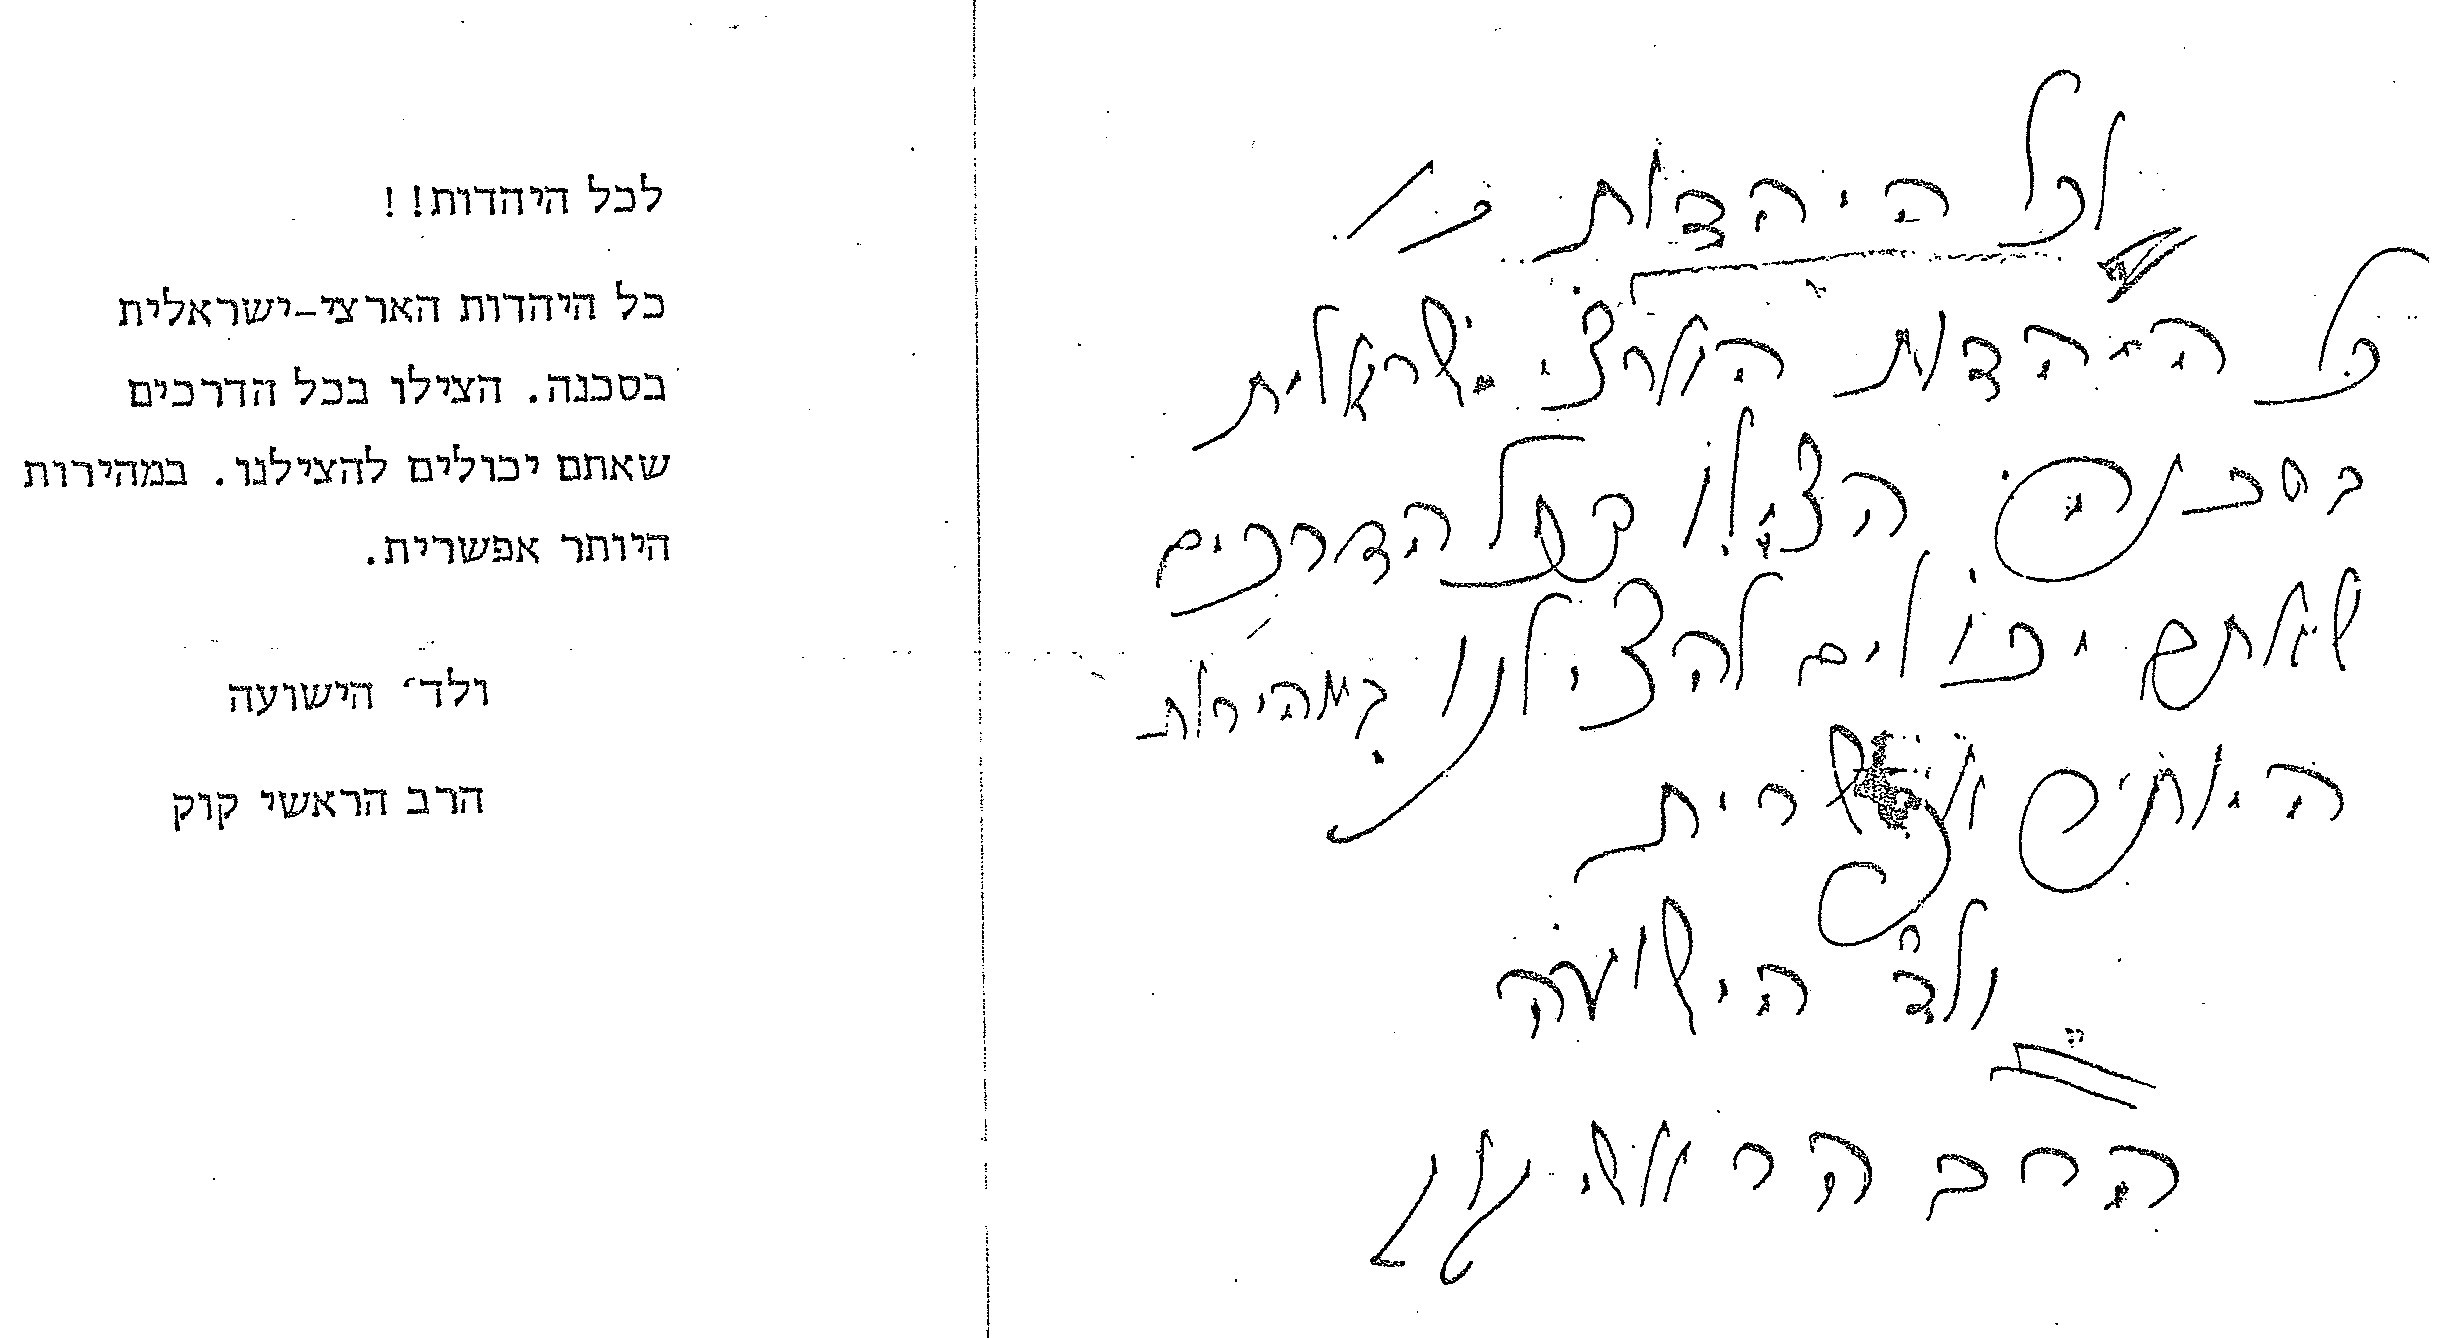 לכל היהדות!!
כל היהדות הארצי ישראלית
בסכנה הצילו בכל הדרכים
שאתם יכולים להצילנו במהירות
היותר אפשרית
ולד' הישועה
הרב הראשי קוק
לכל היהדות!!
כל היהדות הארצי-ישראלית
בסכנה. הצילו בכל הדרכים
שאתם יכולים להצילנו. במהירות
היותר אפשרית.
ולד' הישועה
הרב הראשי קוק